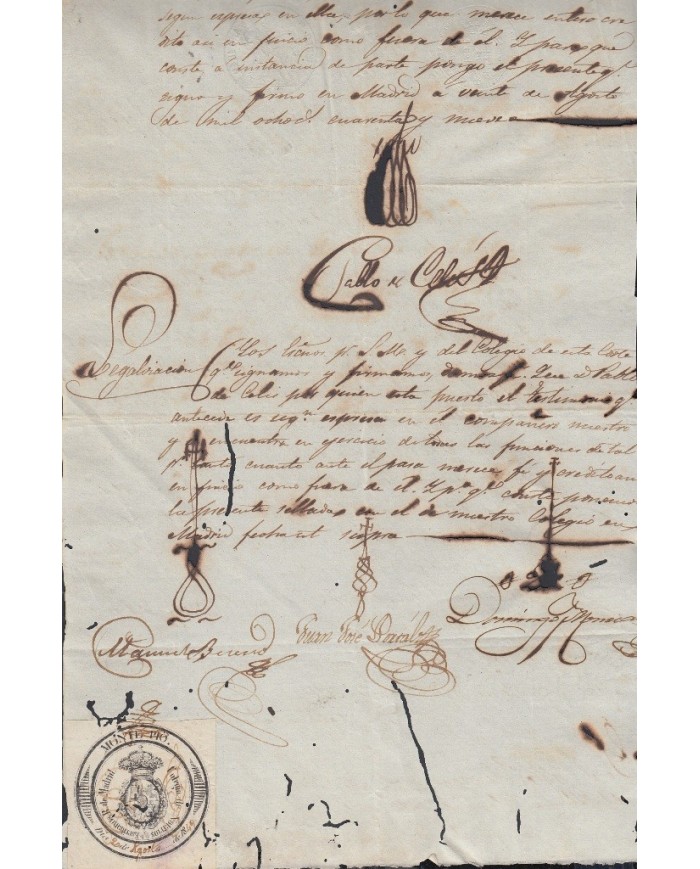 segun espresa en ella, por lo que merece entero cre
dito asi en juicio como fuera de él. Y para que
conste á instancia de parte pongo el presente q.e
signo y firmo en Madrid a veinte de Agosto
de mil ochoc.s cuarenta y nueve
Pablo de Celis
Legalizacion
Los Esc.nos p.r S. M. y del Colegio de esta Corte
q.e signamos y firmamos, damos fe: Que D. Pablo
de Celis por quien esta puesto el testimonio q.e
antecede es seg.n espresa en el compañero nuestro
y se encuentra en ejercicio de las funciones de tal
p.r tanto cuanto ante el pasa merece fe y credito asi
en juicio como fuera de él. Y p.a q.e conste ponemos
la presente sellada con el de nuestro Colegio en
Madrid fecha ut supra
Manuel
Juan José
Domingo
MONTE PIO.
Colegio de Notarios
R. de Madrid
de Agosto de 1849